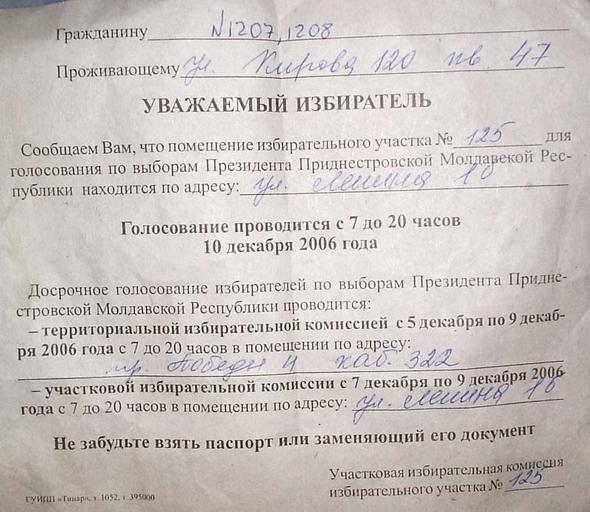 Гражданину N1207,1208
Проживающему ул. Кирова 120 кв 47
УВАЖАЕМЫЙ ИЗБИРАТЕЛЬ
Сообщаем Вам, что помещение избирательного участка № 125 для
голосования по выборам Президента Приднестровской Молдавской Рес-
публики находится по адресу: ул. Ленина 1б
Голосование проводится с 7 до 20 часов
10 декабря 2006 года
Досрочное голосование избирателей по выборам Президента Придне-
стровской Молдавской Республики проводится:
– территориальной избирательной комиссией с 5 декабря по 9 декаб-
ря 2006 года с 7 до 20 часов в помещении по адресу:
пр. Победы 4 каб. 322
– участковой избирательной комиссии с 7 декабря по 9 декабря 2006
года с 7 до 20 часов в помещении по адресу: ул. Ленина 1б
Не забудьте взять паспорт или заменяющий его документ
Участковая избирательная комиссия
избирательного участка № 125
ГУИПП «Типар», з. 1052, т. 395000